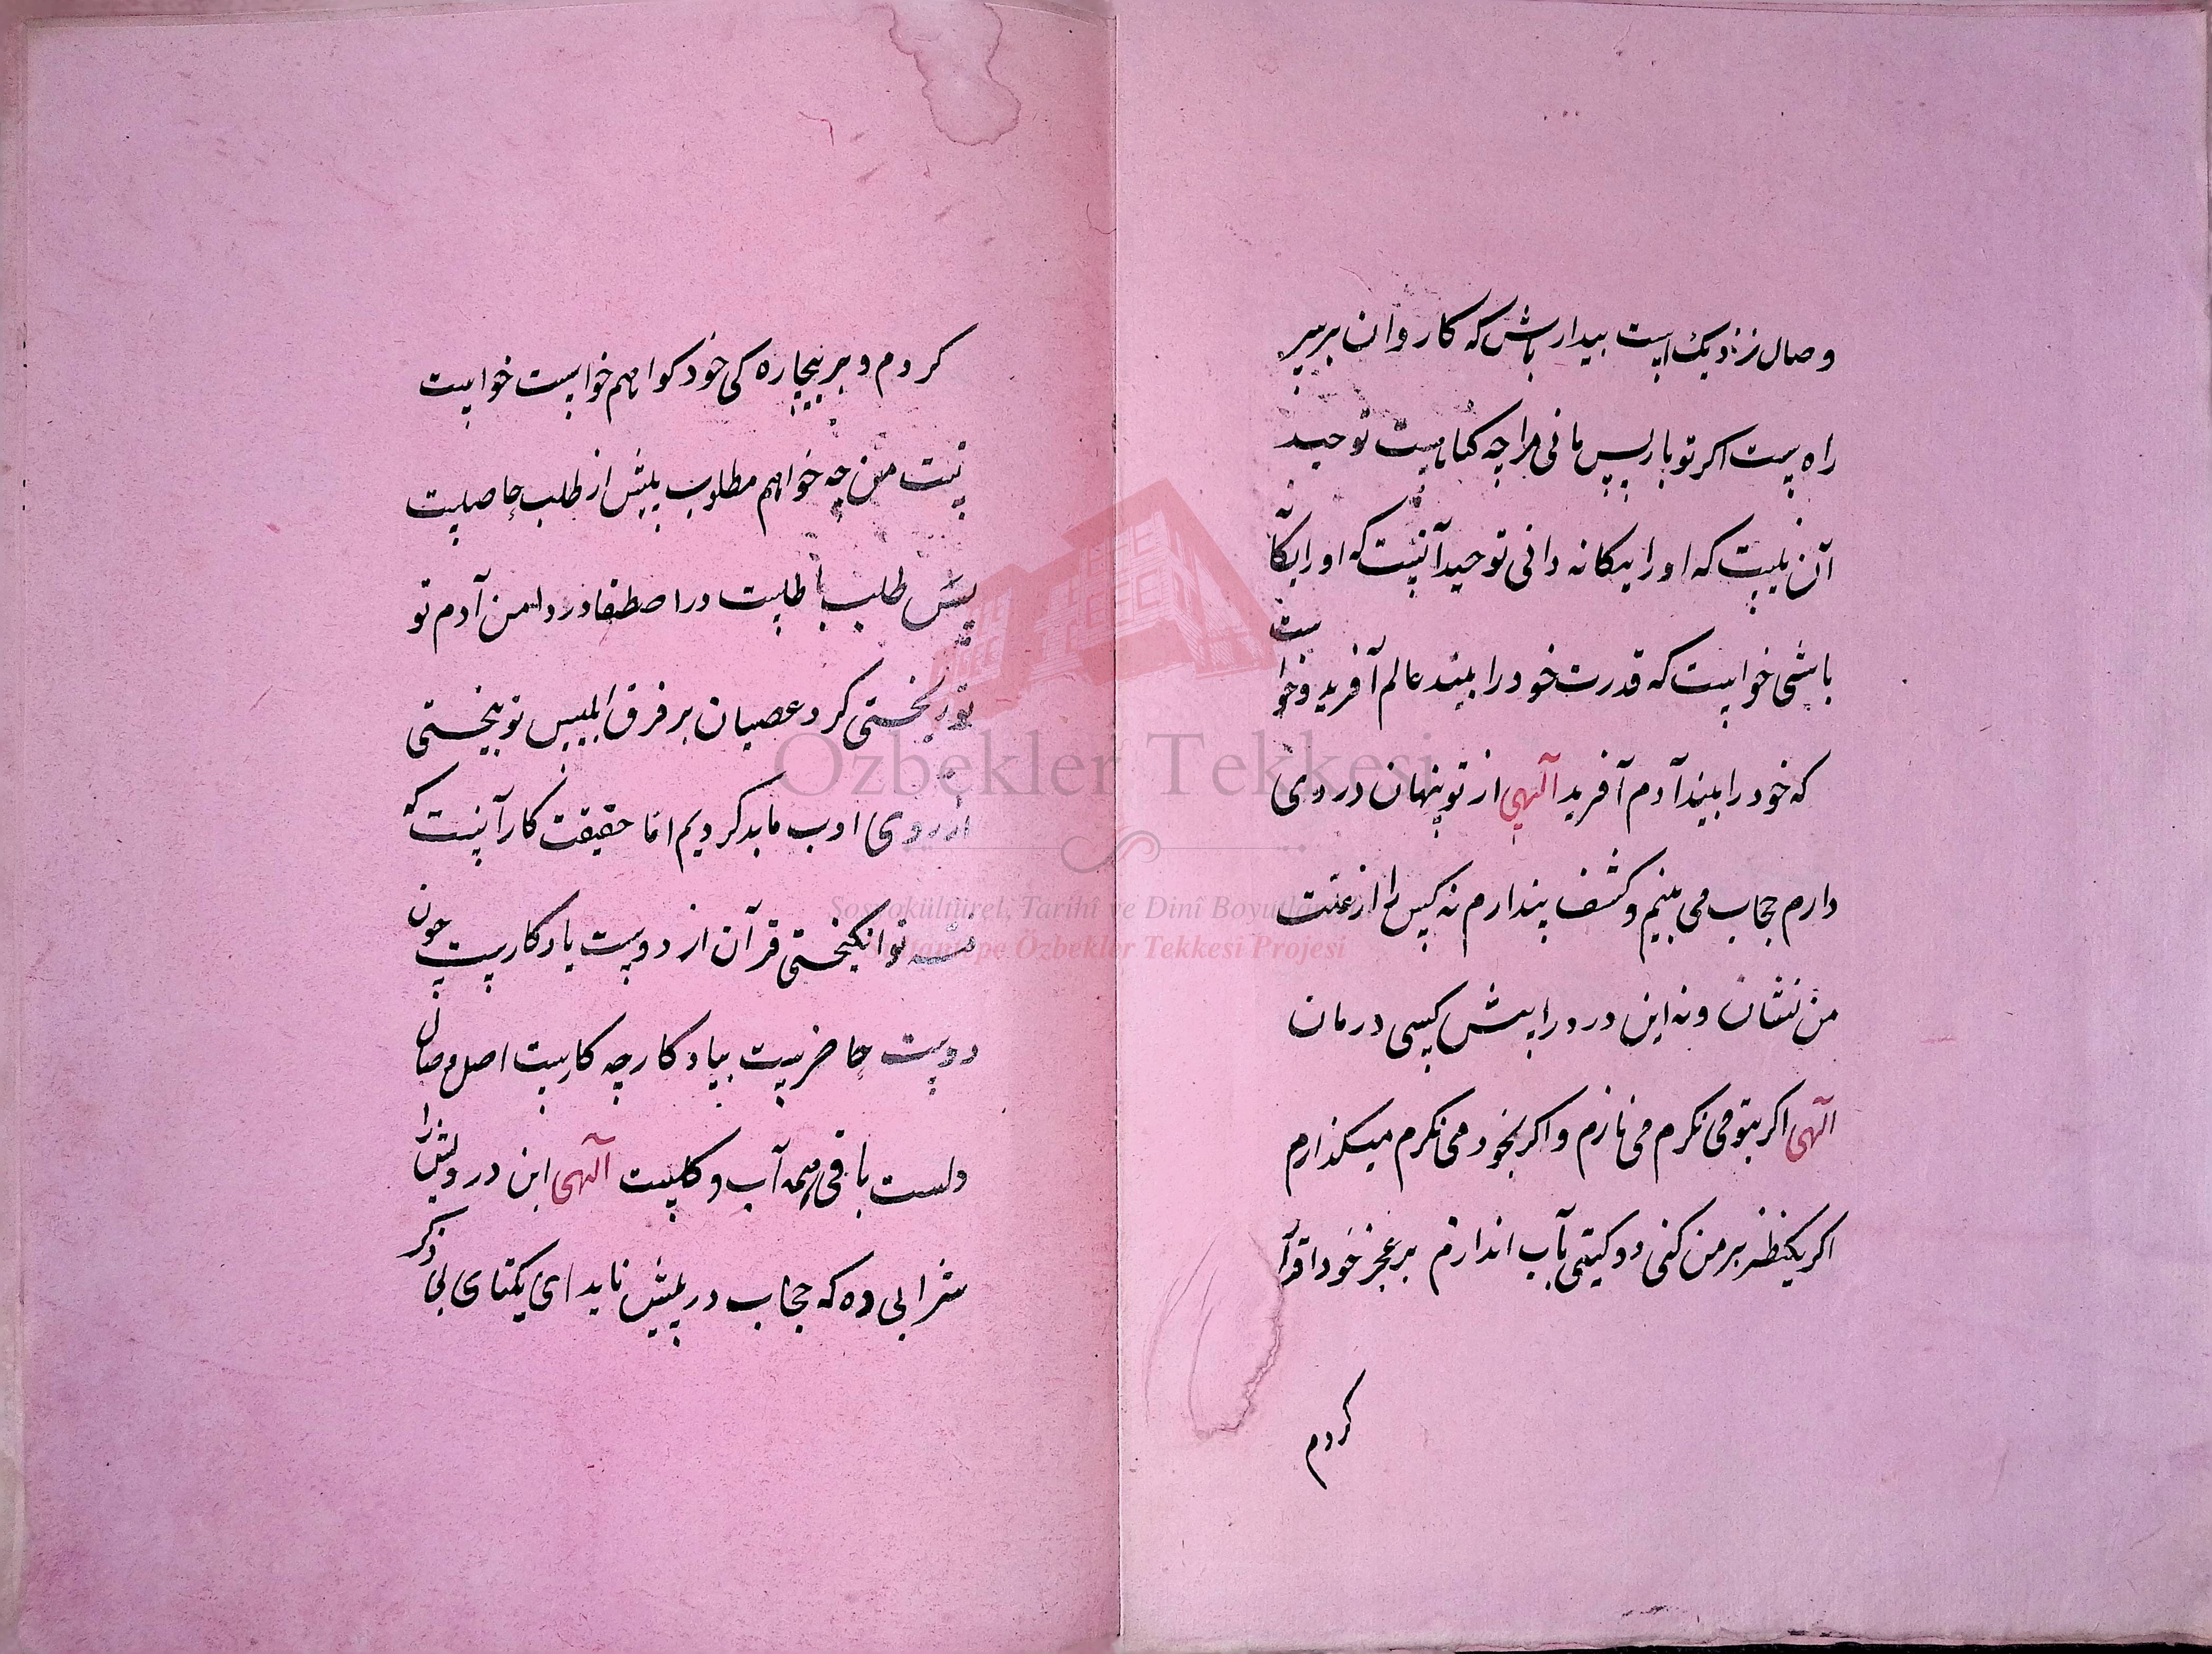 وصال نزدیک است بیدار باش که کاروان بر سر
راه ست اکر تو باز پس مانی مرا چه کناهست توحید
آن نیست که او را یکانه دانی توحید آنست که او را یکا
باشی خواست که قدرت خود را بیند عالم آفرید و خواست
که خود را بیند آدم آفرید آلهی از تو پنهان دردی
دارم حجاب می بینم و کشف پندارم نه کس را از علت
من نشان و نه این درد را پیش کسی درمان
الهی اکر بتو می نکرم می نازم و اکر بخود می نکرم میکدازم
اکر یکنظر بر من کنی دو کیتی بآب اندازم بر عجز خود اقرا
کردم
کردم و بر بیچاره کی خود کواهم خواست خواست
تست من چه خواهم مطلوب پیش از طلب حاصلست
پیش طلب باطلست در اصطفا در دامن آدم تو
تو ریختی کرد عصیان بر فرق ابلیس تو بیختی
از روی ادب ما بد کردیم اما حقیقت کار آنست که
فتنه تو انکیختی قرآن از دوست یادکارست چون
دوست حاضرست بیادکار چه کارست اصل وصال
دلست باقی همه آب و کلست آلهی این درویش را
شرابی ده که حجاب در پیش ناید ای یکتای بی ذکر
Özbekler Tekkesi
Sosyokültürel, Tarihî ve Dinî Boyutlarıyla
Sultantepe Özbekler Tekkesi Projesi